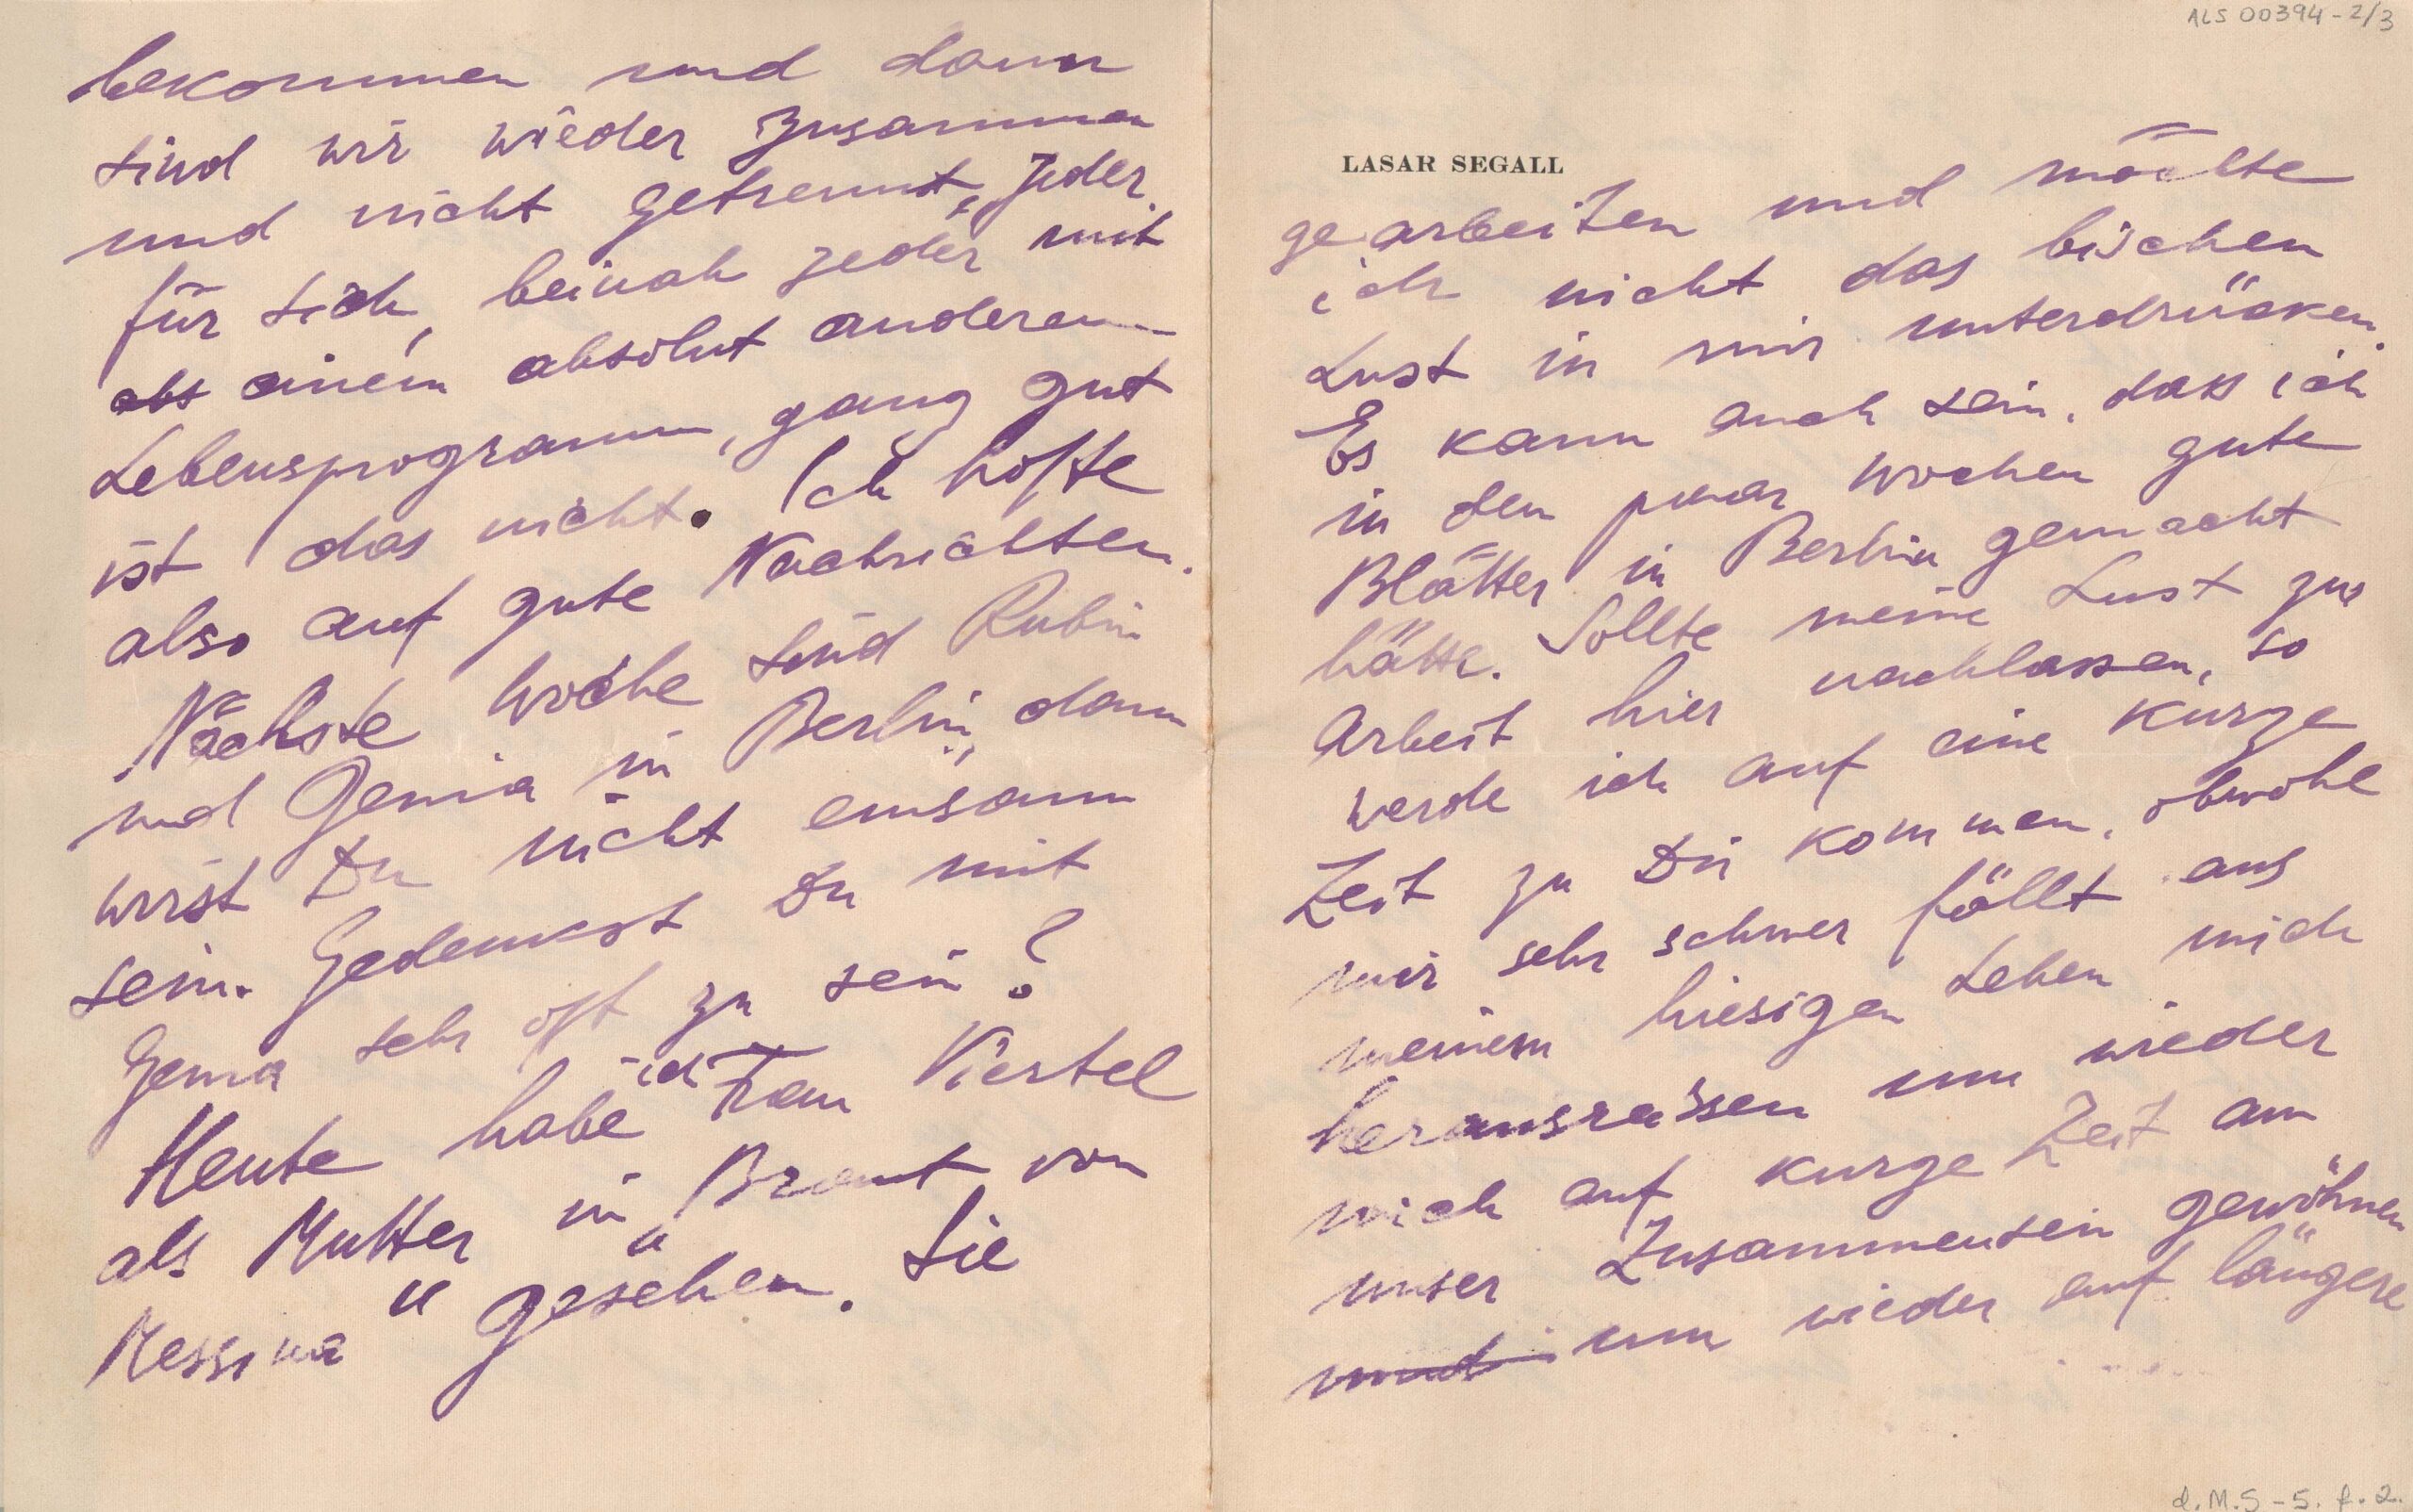 bekommen und dann
sind wir wieder zusammen
und nicht getrennt, Jeder
für sich, beinah jeder mit
einem absolut anderem
Lebensprogramm, ganz gut
ist das nicht. Ich hoffe
also auf gute Nachrichten.
Nächste Woche sind Rubin
und Genia in Berlin, dann
wirst Du nicht einsam
sein. Gedenkst Du mit
Genia sehr oft zu sein?
Heute habe ich Frau Viertel
als Mutter in „Braut von
Messina" gesehen. Sie
ALS 00394-2/3
LASAR SEGALL
gearbeiten und möchte
ich nicht das bischen
Lust in mir unterdrücken.
Es kann auch sein, dass ich
in den paar Wochen gute
Blätter in Berlin gemacht
hätte. Sollte meine Lust zur
Arbeit hier nachlassen, so
werde ich auf eine kurze
Zeit zu Dir kommen, obwohl
mir sehr schwer fällt aus
meinem hiesigen Leben mich
herausreissen um wieder
mich auf kurze Zeit am
unser Zusammensein gewöhnen
und um wieder auf längere
d.M.S-5.f.2.